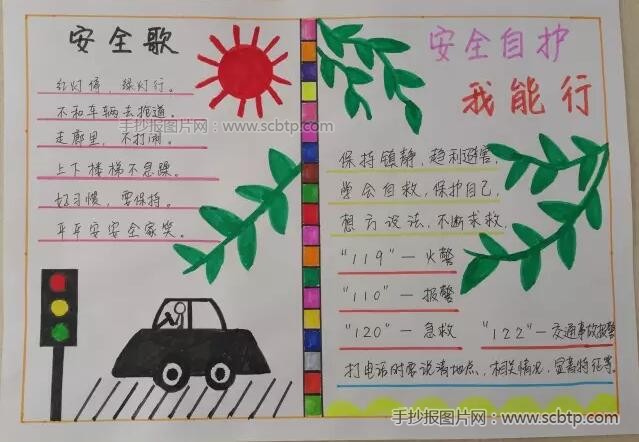 安全歌
红灯停，绿灯行。
不和车辆去抢道。
走廊里，不打闹。
上下楼梯不急躁。
好习惯，要保持。
平平安安全家笑。
手抄报图片网：www.scbtp.com
安全自护
我能行
保持镇静，趋利避害，
学会自救，保护自己，
想方设法，不断求救，
"119"—火警
"110"—报警
"120"—急救 "122"—交通事故报警
打电话时要说清地点，相关情况，显著特征等。
手抄报图片网：www.scbtp.com